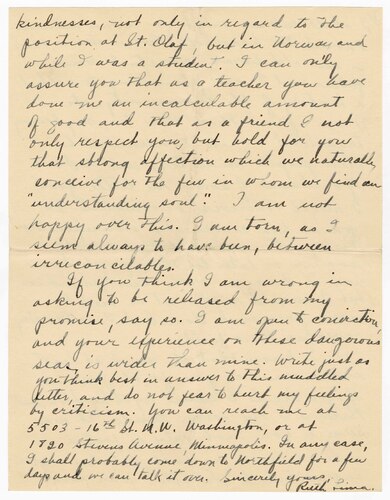 kindnesses, not only in regard to the
position at St. Olaf, but in Norway and
while I was a student. I can only
assure you that as a teacher you have
done me an incalculable amount
of good and that as a friend I not
only respect you, but hold for you
that strong affection which we naturally
conceive for the few in whom we find an
"understanding soul." I am not
happy over this. I am torn, as I
seem always to have been, between
irreconcilables.
If you think I am wrong in
asking to be released from my
promise, say so. I am open to conviction
and your experience on these dangerous
seas is wider than mine. Write just as
you think best in answer to this muddled
letter, and do not fear to hurt my feelings
by criticism. You can reach me at
5503 - 16th St. N.W. Washington, or at
1720 Stevens Avenue, Minneapolis. In any case,
I shall probably come down to Northfield for a few
days and we can talk it over. Sincerely yours,
Ruth Lima.